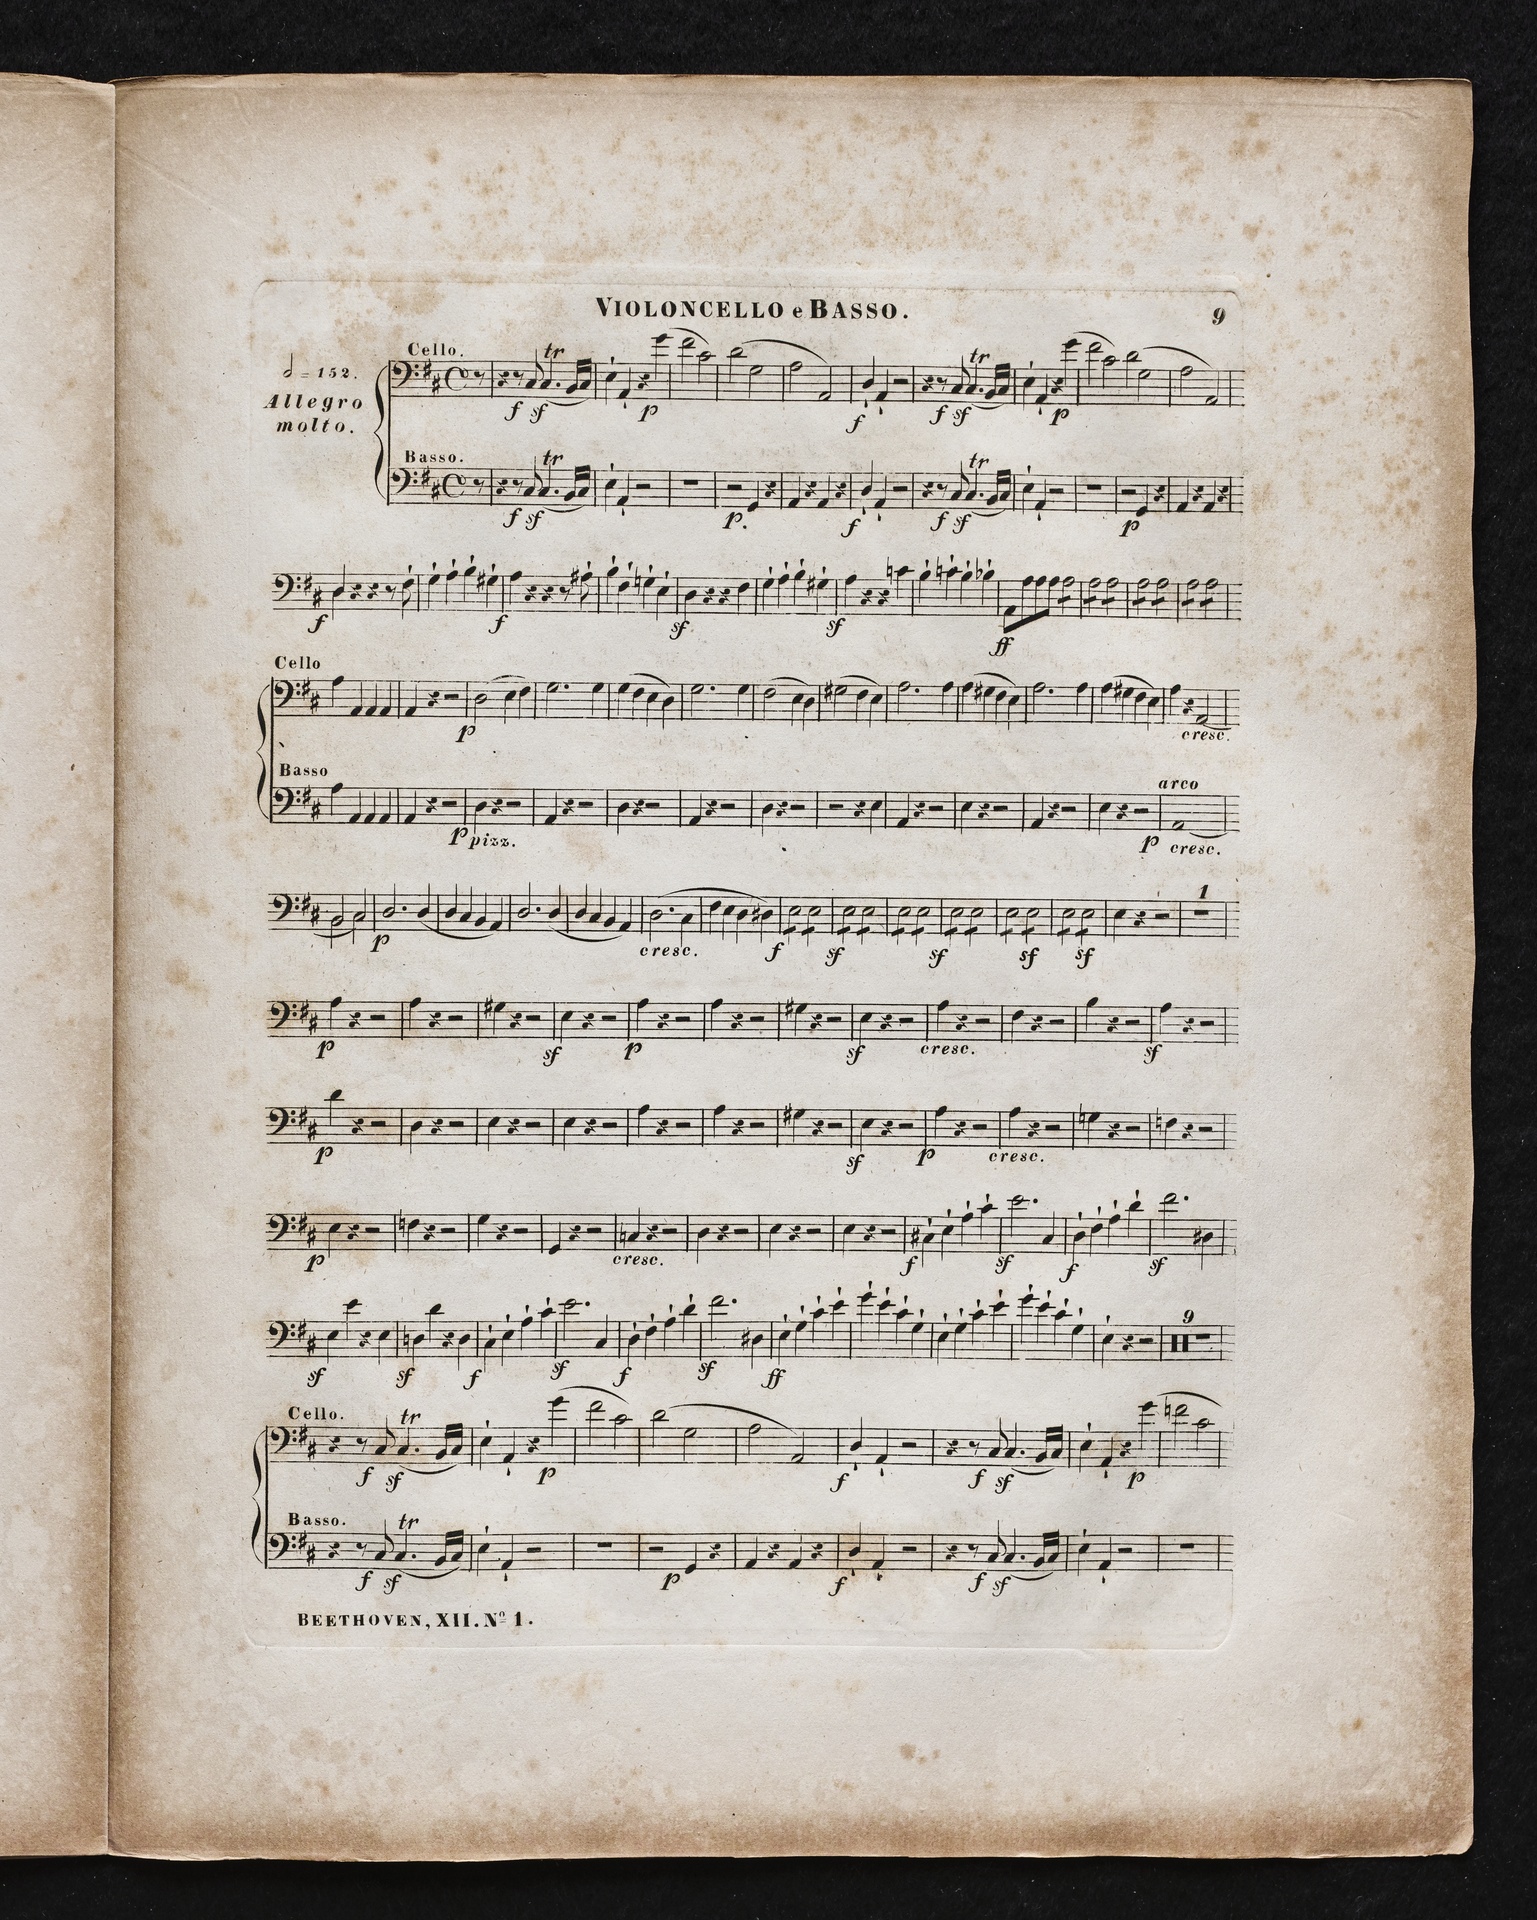 VIOLONCELLO e BASSO. 9
Cello. tr tr
𝅗𝅥 = 152.
Allegro
molto.
f sf p f f sf p
Basso. tr tr
f sf p. f f sf p
f f sf sf ff
Cello
p cresc.
Basso arco
p pizz. p cresc.
1
p cresc. f sf sf sf sf
p sf p sf cresc. sf
p sf p cresc.
p cresc. f sf f sf
9
sf sf f sf f sf ff
Cello. tr
f sf p f f sf p
Basso. tr
f sf p f f sf
BEETHOVEN, XII. Nº 1.